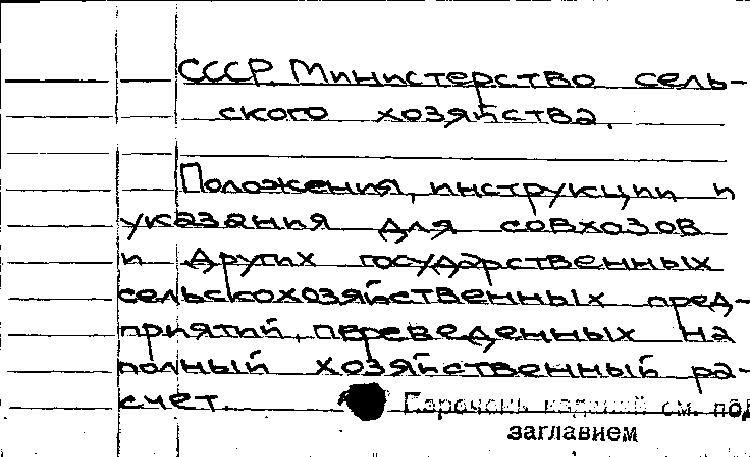 СССР. Министерство сель-
ского хозяйства.
Положения, инструкции и
указания для совхозов
и других государственных
сельскохозяйственных пред-
приятий, переведенных на
полный хозяйственный ра-
счет.
Перечень изданий см. под
заглавием